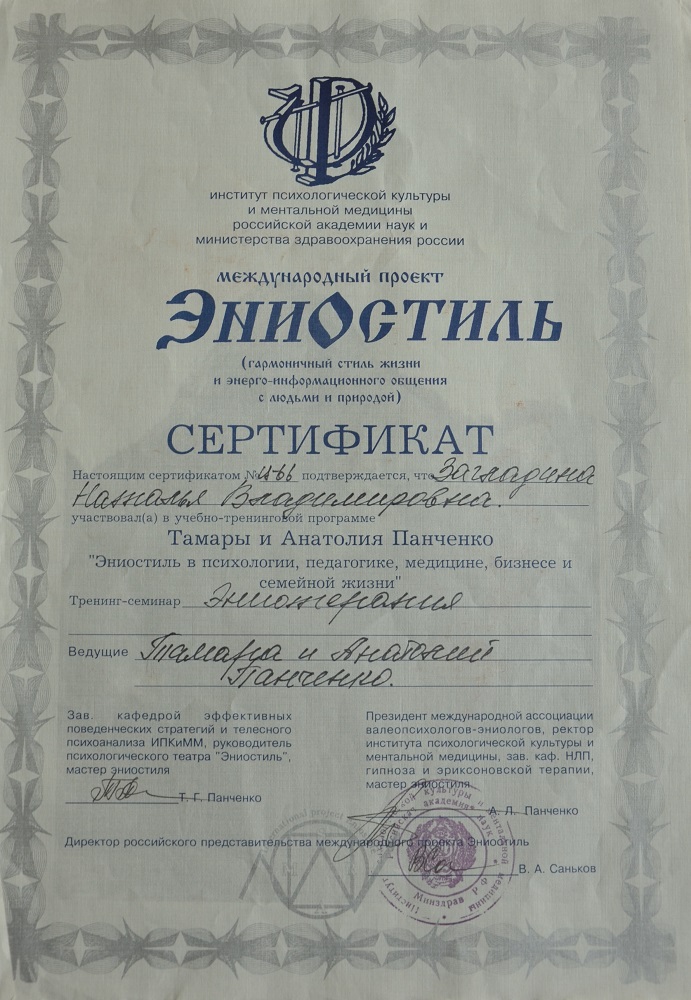 институт психологической культуры
и ментальной медицины
российской академии наук и
министерства здравоохранения россии
международный проект
ЭНИОСТИЛЬ
(гармоничный стиль жизни
и энерго-информационного общения
с людьми и природой)
СЕРТИФИКАТ
Настоящим сертификатом № подтверждается, что
Наталья Владимировна.
участвовал(а) в учебно-тренинговой программе
Тамары и Анатолия Панченко
"Эниостиль в психологии, педагогике, медицине, бизнесе и
семейной жизни"
Тренинг-семинар Эниотерапия
Ведущие Тамара и Анатолий
Панченко.
Зав. кафедрой эффективных
поведенческих стратегий и телесного
психоанализа ИПКиММ, руководитель
психологического театра "Эниостиль",
мастер эниостиля
Т. Г. Панченко
Президент международной ассоциации
валеопсихологов-эниологов, ректор
института психологической культуры и
ментальной медицины, зав. каф. НЛП,
гипноза и эриксоновской терапии,
мастер эниостиля
А. Л. Панченко
Директор российского представительства международного проекта Эниостиль
В. А. Саньков